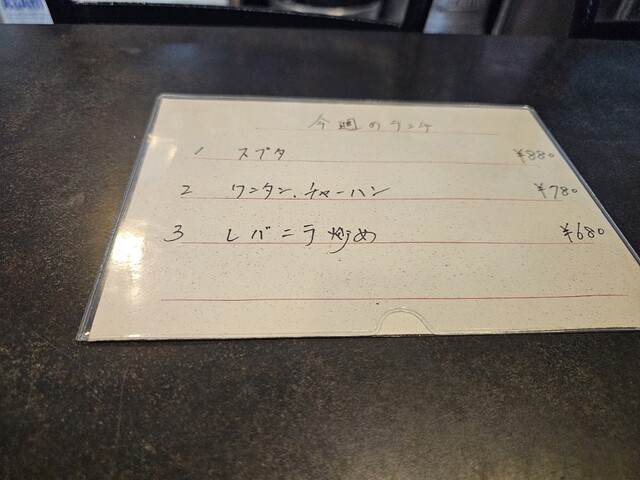 今週のランチ
1 スブタ ¥880
2 ワンタン、チャーハン ¥780
3 レバニラ炒め ¥680